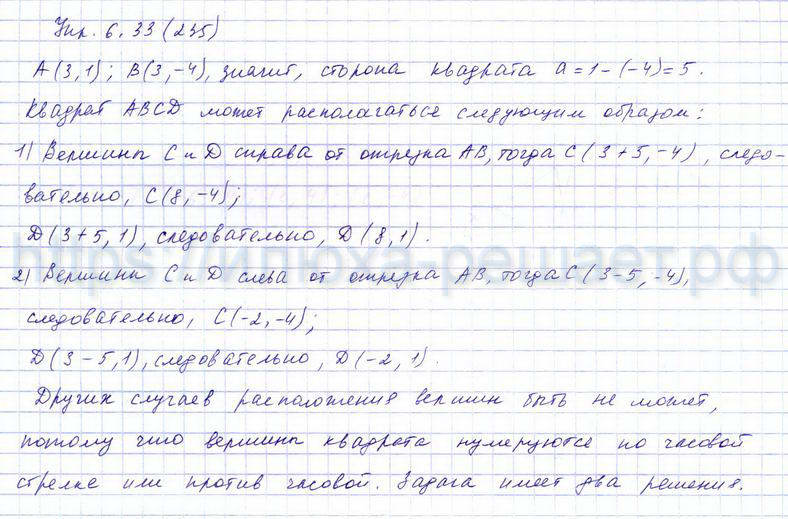 Упр. 6.33 (235)
A(3,1); B(3,-4), значит, сторона квадрата a=1-(-4)=5.
Квадрат ABCD может располагаться следующим образом:
1) Вершины C и D справа от отрезка AB, тогда C(3+5,-4), следо-
вательно, C(8,-4);
D(3+5,1), следовательно, D(8,1).
https://илюха-решает.рф
2) Вершины C и D слева от отрезка AB, тогда C(3-5,-4),
следовательно, C(-2,-4);
D(3-5,1), следовательно, D(-2,1).
Других случаев расположения вершин быть не может,
потому что вершины квадрата нумеруются по часовой
стрелке или против часовой. Задача имеет два решения.